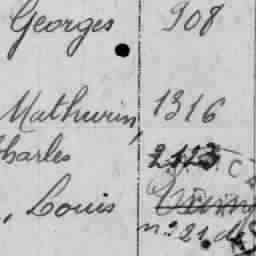 Georges 908
Mathurin, 1316
Charles 2123
, Louis
n° 21. de